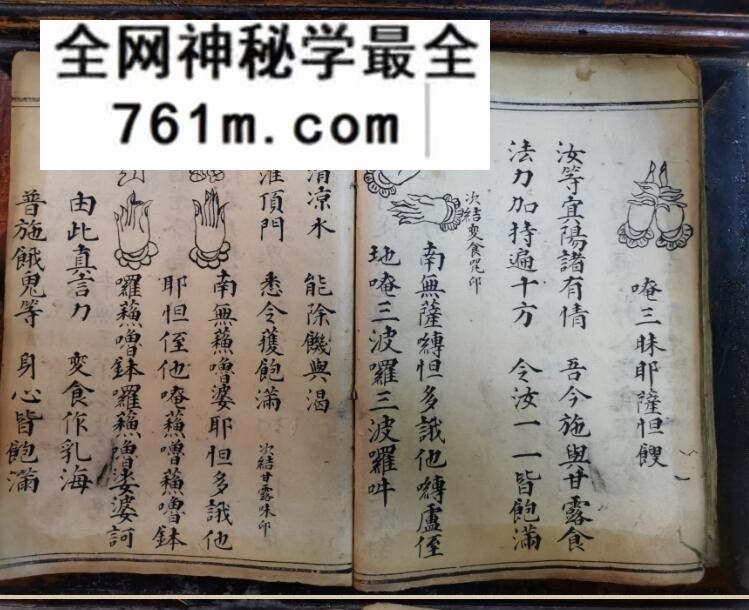 全网神秘学最全
761m.com
唵三昧耶薩怛鍐
汝等宜陽諸有情 吾今施與甘露食
法力加持遍十方 令汝一一皆飽滿
次結變食咒印
南無薩嚩怛多誐他嚩盧侄
地唵三波囉三波囉吽
清凉水 能除饑與渴
灌頂門 悉令獲飽滿
次結甘露味印
南無蘓嚕婆耶怛多誐他
耶怛侄他唵蘓嚕蘓嚕鉢
羅蘓嚕鉢囉蘓嚕娑婆訶
由此真言力 变食作乳海
普施餓鬼等 身心皆飽滿